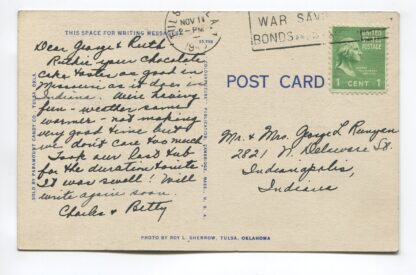 THIS SPACE FOR WRITING MESSAGES
Dear George & Ruth -
Ruthie your Chocolate
cake tastes as good in
Missouri as it does in
Indiana. We're having
fun - weather some
warmer - not making
very good time but
we don't care too much
Took our last tub
for the duration tonite
It was swell! Will
write again soon.
Charles & Betty
SOLD BY PARAMOUNT CANDY CO. TULSA, OKLA.
NOV 11
2-PM
WAR SAV
BONDS
UNITED STATES
POSTAGE
1 CENT 1
POST CARD
Mr. & Mrs. George L Runyan
2821 N. Delaware St.
Indianapolis,
Indiana
PHOTO BY ROY L. SHERROW, TULSA, OKLAHOMA